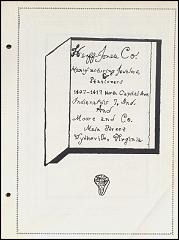 Herff Jones Co.
Manufacturing Jewelers
&
Stationers
1407-1419 North Capitol Ave.
Indianapolis 7, Ind.
And
Moore and Co.
Main Street
Wytheville, Virginia